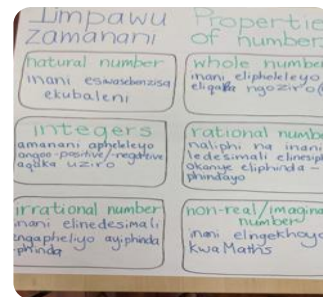 Iimpawu
zamanani
Propertie
of number
natural number
inani esiwasebenzisa
ekubaleni
whole number
inani elipheleleyo
eliqala ngoziro
integers
amanani apheleleyo
angoo-positive/negative
aquka uziro
rational numb
naliphi na inani
ledesimali elinesiph
okanye eliphinda-
phindayo
irrational number
inani elinedesimali
engapheliyo ayiphinda
phinda
non-real/imagina
number
inani elngekhoyo
kwaMaths